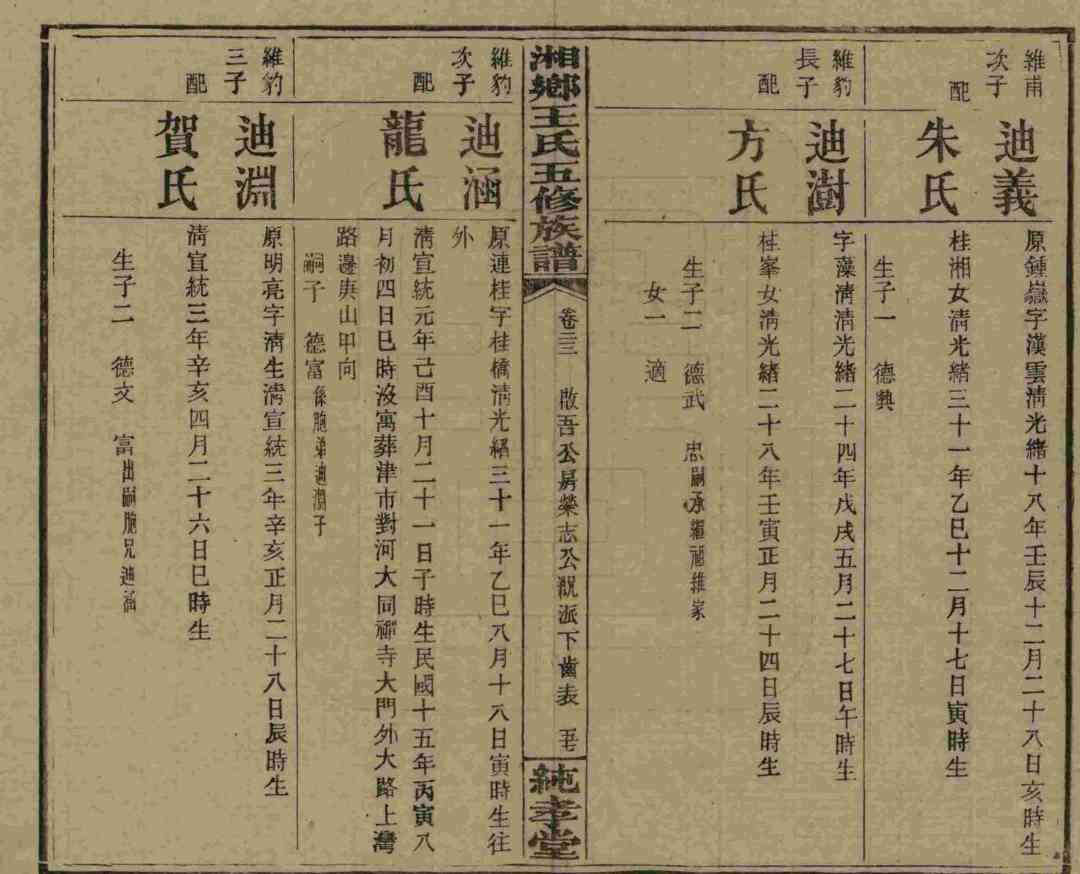 維甫
次子
迪義
原鍾嶽字漢雲淸光緖十八年壬辰十二月二十八日亥時生
配
朱氏
桂湘女淸光緖三十一年乙巳十二月十七日寅時生
生子一 德興
維豹
長子
迪澍
字藻淸淸光緖二十四年戊戌五月二十七日午時生
配
方氏
桂峯女淸光緖二十八年壬寅正月二十四日辰時生
生子二 德武 忠嗣承繼祖維家
女一 適
湘鄉王氏五修族譜
卷三三 啟吾公房榮志公派下齒表
純孝堂
維豹
次子
迪涵
原連桂字桂橋淸光緖三十一年乙巳八月十八日寅時生往
外
配
龍氏
淸宣統元年己酉十月二十一日子時生民國十五年丙寅八
月初四日巳時沒寓葬津市對河大同禪寺大門外大路上灣
路邊庚山甲向
嗣子 德富係胞弟迪淵子
維豹
三子
迪淵
原明亮字淸生淸宣統三年辛亥正月二十八日辰時生
配
賀氏
淸宣統三年辛亥四月二十六日巳時生
生子二 德文 富出嗣胞兄迪涵